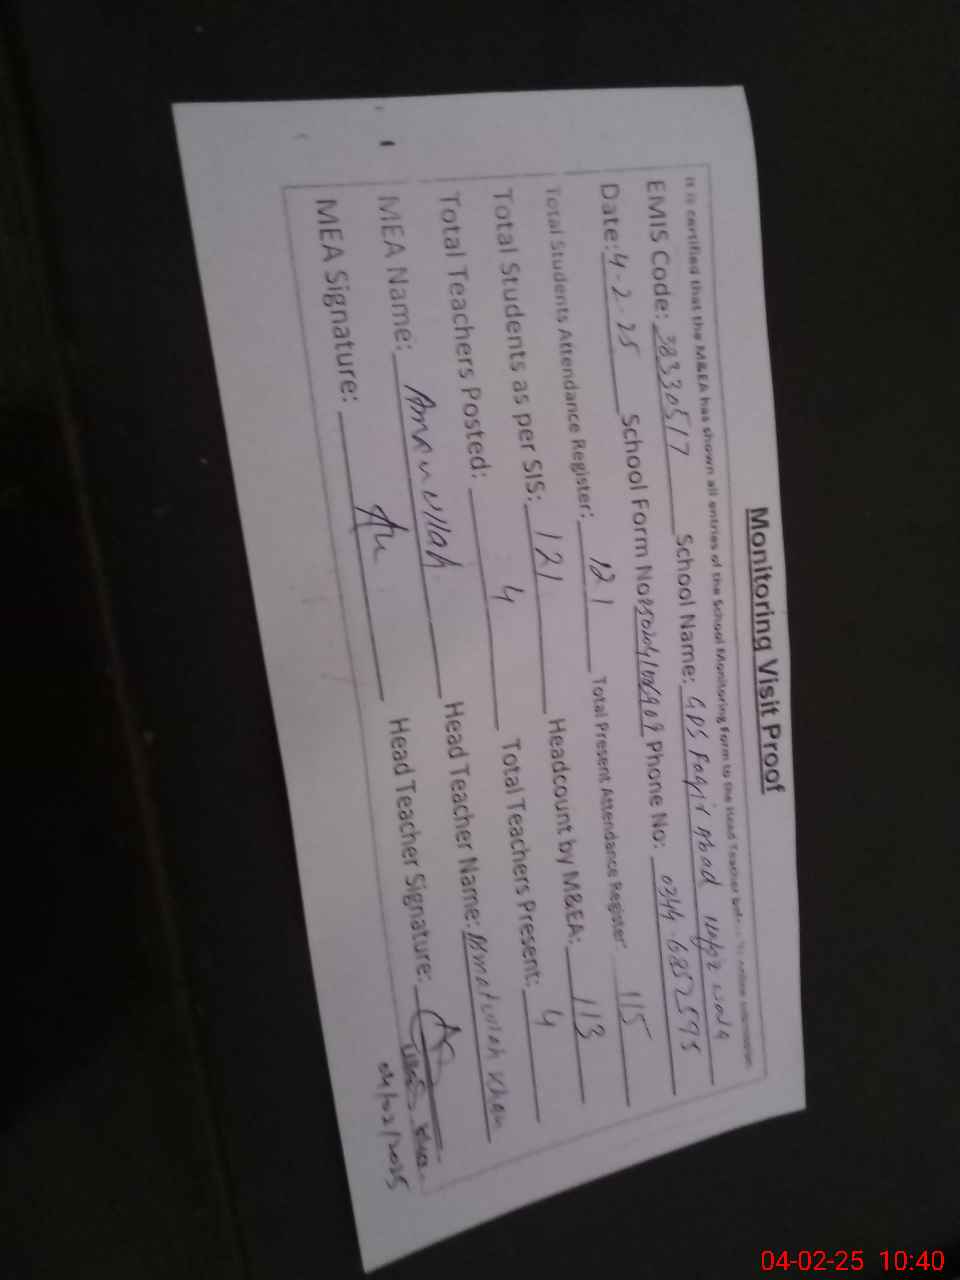 Monitoring Visit Proof
It is certified that the M&EA has shown all entries of the School Monitoring Form to the Head Teacher
EMIS Code: 38330517 School Name: GPS Faqir Abad
Date: 4-2-25 School Form No Phone No: 0344-6852595
Total Students Attendance Register: 121 Total Present Attendance Register: 115
Total Students as per SIS: 121 Headcount by M&EA: 113
Total Teachers Posted: 4 Total Teachers Present: 4
MEA Name: Amanullah Head Teacher Name: Khan
MEA Signature: Head Teacher Signature:
04/02/2025
04-02-25 10:40